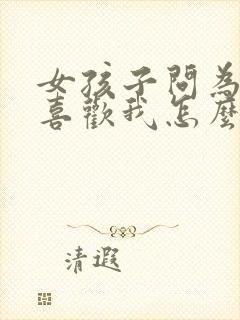 女孩子問為
喜歡我怎麼
清遐